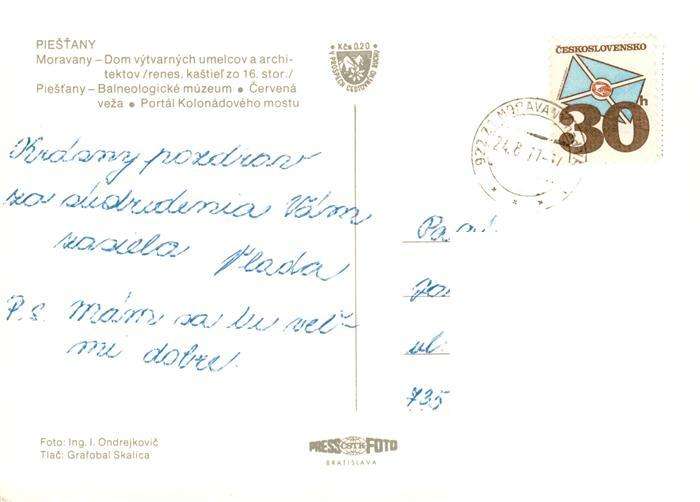 PIEŠŤANY
Moravany – Dom výtvarných umelcov a archi-
tektov /renes. kaštieľ zo 16. stor./
Piešťany – Balneologické múzeum ● Červená
veža ● Portál Kolonádového mostu
● Kčs 0,20 ●
ČESKOSLOVENSKO
30h
24.8.77-17
Krásny pozdrav
zo sústredenia Vám
zasiela Vlada
P.s. Mám sa tu veľ-
mi dobre
ul.
735
Foto: Ing. I. Ondrejkovič
Tlač: Grafobal Skalica
PRESS ČSTK FOTO
BRATISLAVA